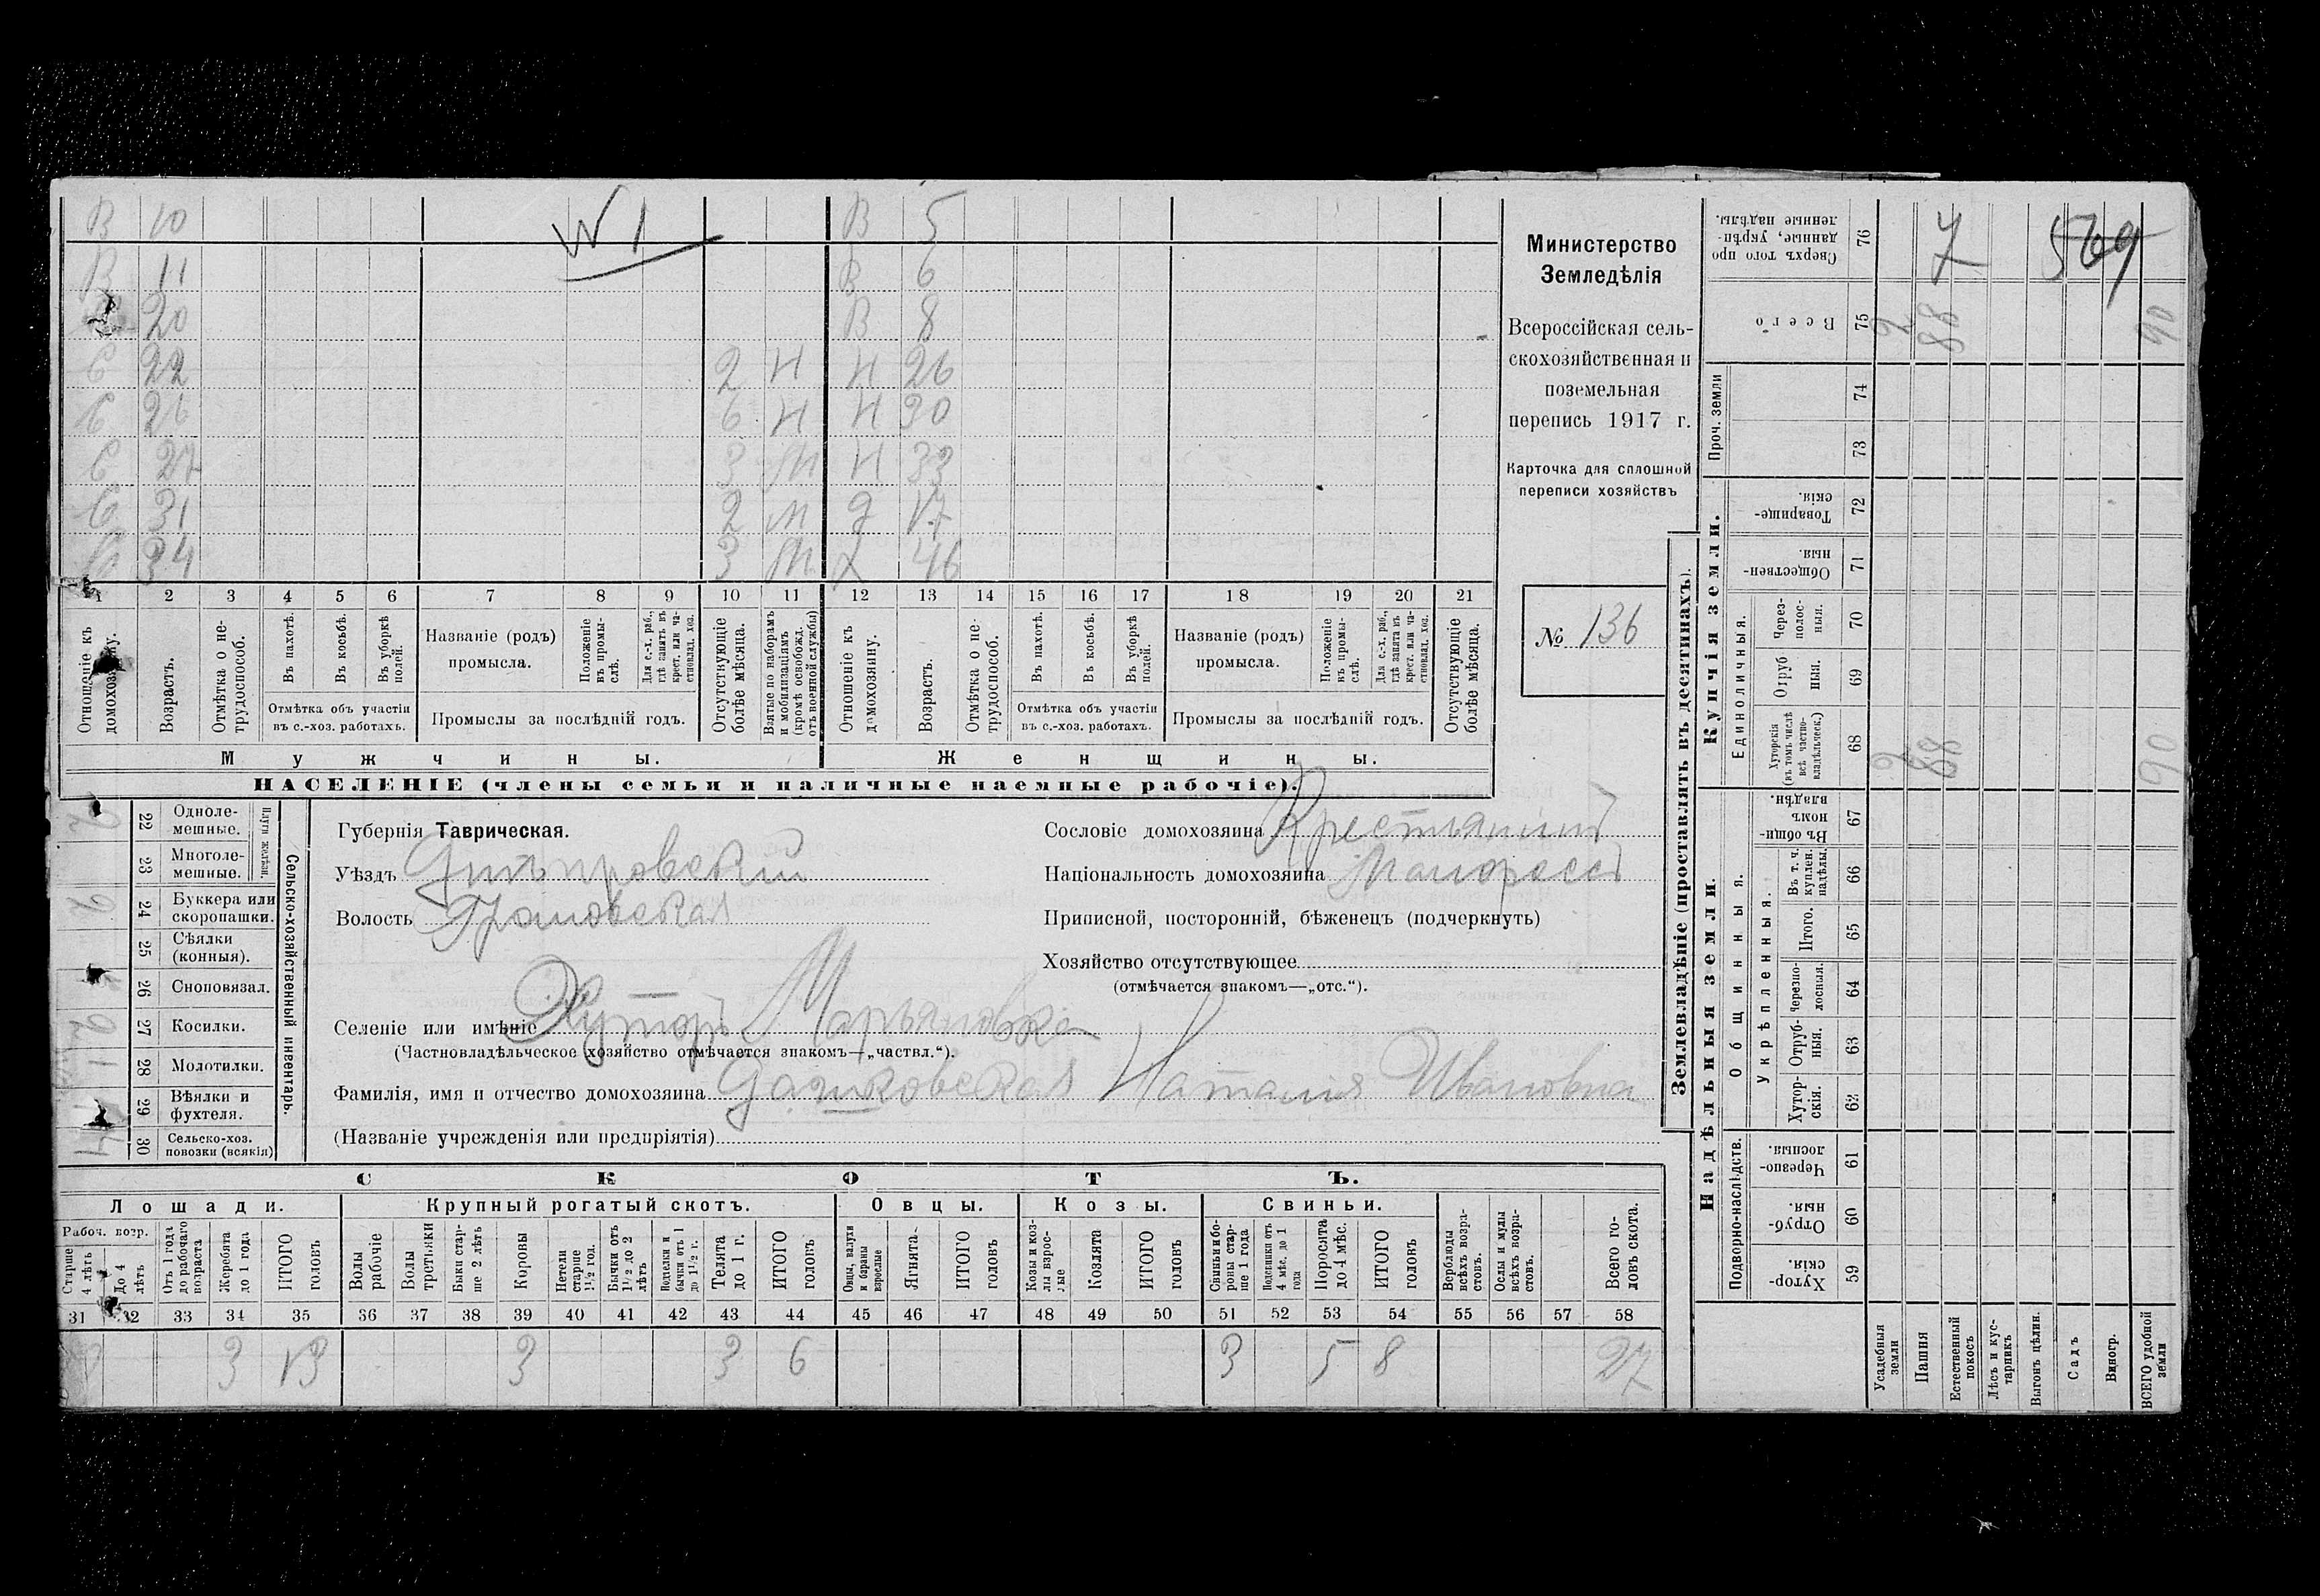 № 1
В 10 В 5
В 11 В 6
20 В 8
С 22 2 Н Н 26
С 26 6 Н Н 30
С 27 3 М Н 33
С 31 2 М Д 17
34 3 М Х 46
1 2 3 4 5 6 7 8 9 10 11 12 13 14 15 16 17 18 19 20 21
Отношеніе къ домохозяину.
Возрастъ.
Отмѣтка о нетрудоспособ.
Въ пахотѣ.
Въ косьбѣ.
Въ уборкѣ полей.
Отмѣтка объ участіи въ с.-хоз. работахъ.
Названіе (родъ) промысла.
Положеніе въ промыслѣ.
Для с.-х. раб., гдѣ занятъ въ крест. или частновлад. хоз.
Промыслы за послѣдній годъ.
Отсутствующіе болѣе мѣсяца.
Взятые по наборамъ и мобилизаціямъ (кромѣ освобожд. отъ военной службы)
Отношеніе къ домохозяину.
Возрастъ.
Отмѣтка о нетрудоспособ.
Въ пахотѣ.
Въ косьбѣ.
Въ уборкѣ полей.
Отмѣтка объ участіи въ с.-хоз. работахъ.
Названіе (родъ) промысла.
Положеніе въ промыслѣ.
Для с.-х. раб., гдѣ занята въ крест. или частновлад. хоз.
Промыслы за послѣдній годъ.
Отсутствующіе болѣе мѣсяца.
Мужчины. Женщины.
НАСЕЛЕНІЕ (члены семьи и наличные наемные рабочіе).
Министерство
Земледѣлія
Всероссійская сель-
скохозяйственная и
поземельная
перепись 1917 г.
Карточка для сплошной
переписи хозяйствъ
№ 136
Сельско-хозяйственный инвентарь.
Плуги желѣзн.
22 Одноле-мешные. 2
23 Многоле-мешные.
24 Буккера или скоропашки. 2
25 Сѣялки (конныя).
26 Сноповязал.
27 Косилки. 2
28 Молотилки. 1
29 Вѣялки и фухтеля.
30 Сельско-хоз. повозки (всякія) 4
Губернія Таврическая.
Уѣздъ Днѣпровскій
Волость
Селеніе или имѣніе Хуторъ Марьяновка
(Частновладѣльческое хозяйство отмѣчается знакомъ—„частвл.“).
Фамилія, имя и отчество домохозяина Дашковская Наталія Ивановна
(Названіе учрежденія или предпріятія)
Сословіе домохозяина Крестьянинъ
Національность домохозяина Малороссъ
Приписной, посторонній, бѣженецъ (подчеркнуть)
Хозяйство отсутствующее
(отмѣчается знакомъ—„отс.“).
СКОТЪ.
Лошади. Крупный рогатый скотъ. Овцы. Козы. Свиньи.
Рабоч. возр.
Старше 4 лѣтъ
До 4 лѣтъ
Отъ 1 года до рабочаго возраста
Жеребята до 1 года
ИТОГО головъ
Волы рабочіе
Волы третьяки
Быки старше 2 лѣтъ
Коровы
Нетели старше 1½ год.
Бычки отъ 1½ до 2 лѣтъ
Подтелки и бычки отъ 1 до 1½ г.
Телята до 1 г.
ИТОГО головъ
Овцы, валухи и бараны взрослые
Ягнята
ИТОГО головъ
Козы и козлы взрослые
Козлята
ИТОГО головъ
Свиньи и боровы старше 1 года
Подсвинки отъ 4 мѣс. до 1 года
Поросята до 4 мѣс.
ИТОГО головъ
Верблюды всѣхъ возрастовъ.
Ослы и мулы всѣхъ возрастовъ.
Всего головъ скота.
31 32 33 34 35 36 37 38 39 40 41 42 43 44 45 46 47 48 49 50 51 52 53 54 55 56 57 58
3 13 3 3 6 3 5 8 27
Землевладѣніе (проставлять въ десятинахъ).
Купчія земли.
Надѣльныя земли.
Сверхъ того проданные, укрѣпленные надѣлы. 76 7 569
Всего 75 2 88 90
Проч. земли 74
73
Товарищескія. 72
Общественныя. 71
Единоличныя.
Черезполосныя. 70
Отрубныя. 69
Хуторскія (въ томъ числѣ всѣ частновладѣльческ.) 68 2 88 90
Общинныя.
Въ общинномъ владѣн. 67
Укрѣпленныя.
Въ т. ч. куплен. надѣлы. 66
Итого. 65
Черезполосныя. 64
Отрубныя. 63
Хуторскія. 62
Подворно-наслѣдств.
Черезполосныя. 61
Отрубныя. 60
Хуторскія. 59
Усадебныя земли
Пашня
Естественный покосъ
Лѣсъ и кустарникъ
Выгонъ цѣлин.
Садъ
Виногр.
ВСЕГО удобной земли